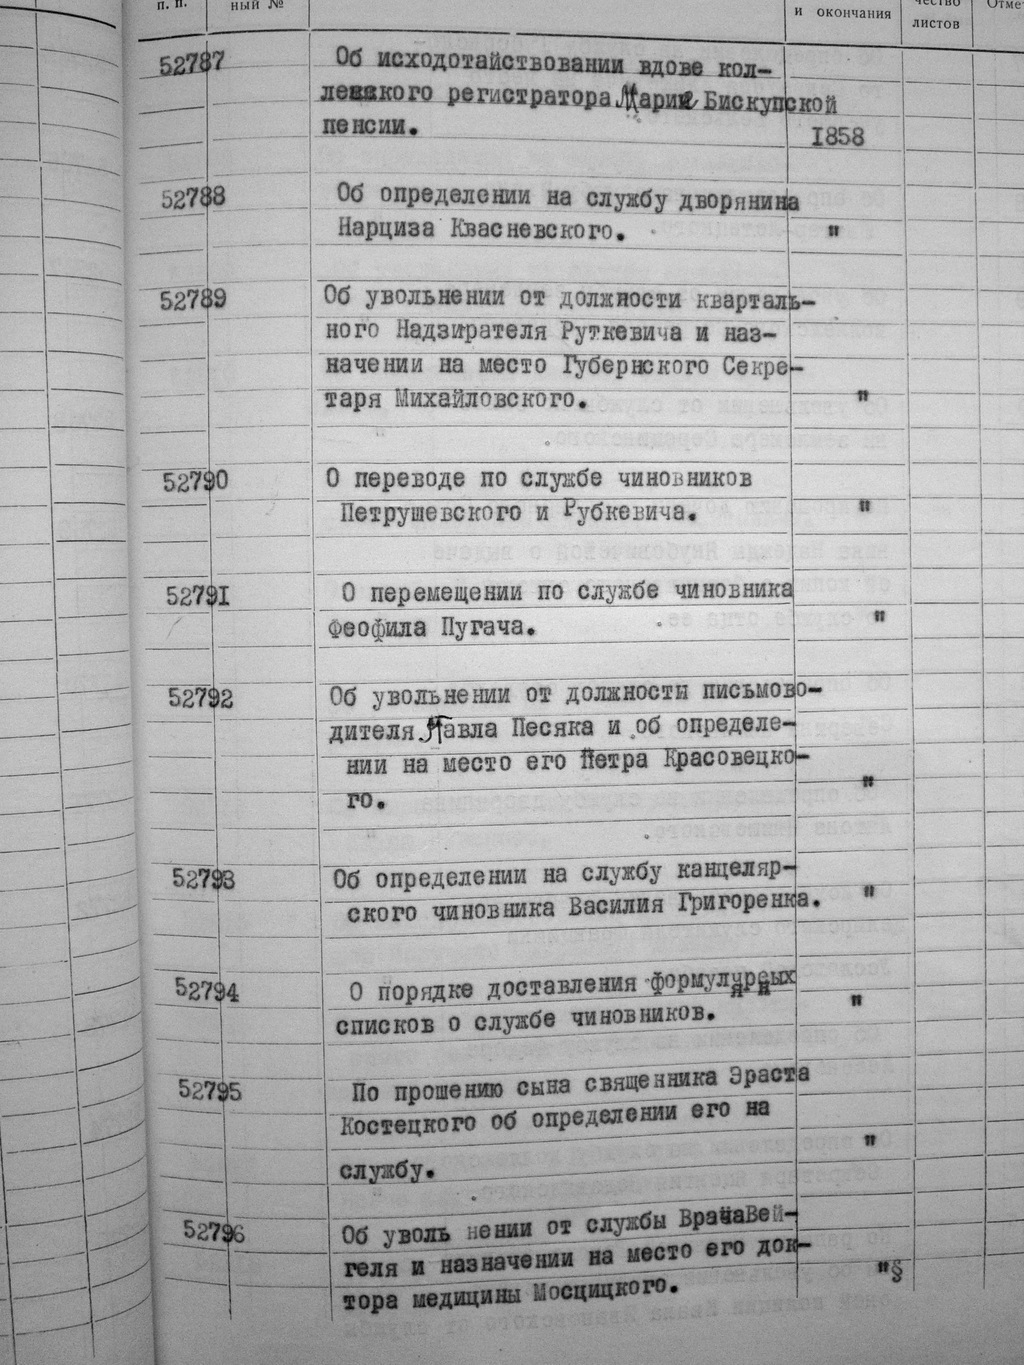 п. п.
ный №
и окончания
чество
листов
Отме
52787 Об исходотайствовании вдове кол-
лежского регистратора Марии Бискупской
пенсии.
1858
52788 Об определении на службу дворянина
Нарциза Квасневского. "
52789 Об увольнении от должности кварталь-
ного Надзирателя Руткевича и наз-
начении на место Губернского Секре-
таря Михайловского. "
52790 О переводе по службе чиновников
Петрушевского и Рубкевича. "
52791 О перемещении по службе чиновника
Феофила Пугача. "
52792 Об увольнении от должности письмово-
дителя Павла Песяка и об определе-
нии на место его Петра Красовецко-
го. "
52793 Об определении на службу канцеляр-
ского чиновника Василия Григоренка. "
52794 О порядке доставления формулярных
списков о службе чиновников. "
52795 По прошению сына священника Эраста
Костецкого об определении его на
службу. "
52796 Об уволь нении от службы Врача Вей-
геля и назначении на место его док-
тора медицины Мосцицкого. "§